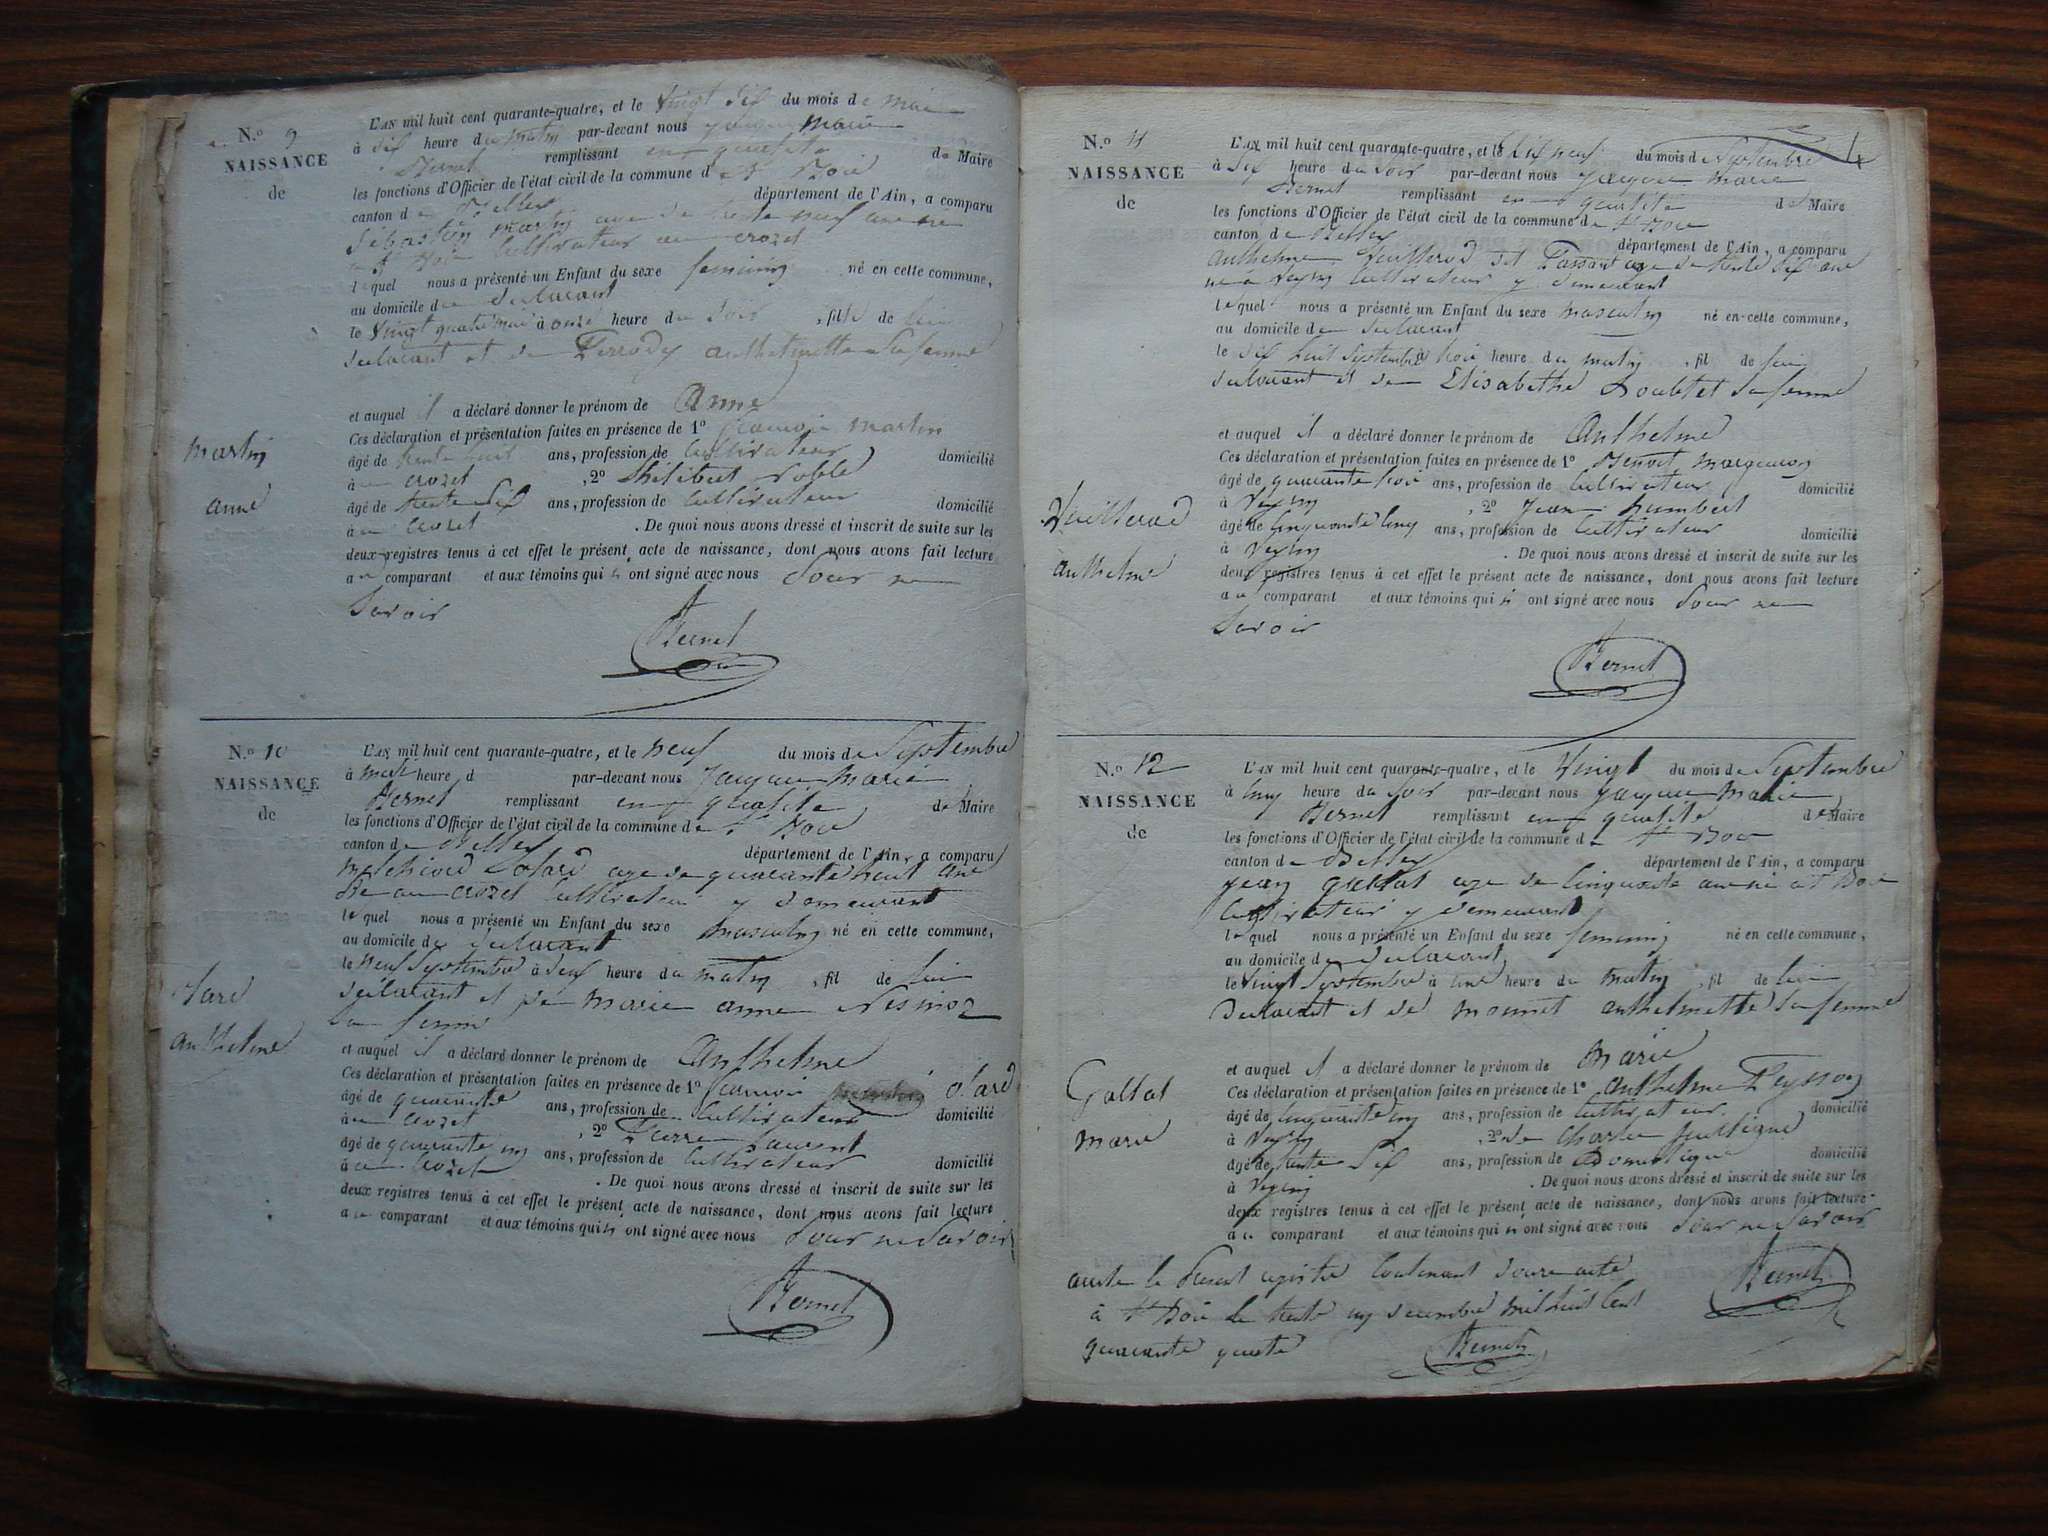 N.o 9
NAISSANCE
de
martin
anne
L'AN mil huit cent quarante-quatre, et le vingt six du mois de mai
à six heure du matin par-devant nous jacques marie
Bernet remplissant en qualité de Maire
les fonctions d'Officier de l'état civil de la commune d St Boi
canton de Belley département de l'Ain, a comparu
Sébastien martin age de trente neuf ans ne
a St Boi Cultivateur au crozet
lequel nous a présenté un Enfant du sexe feminin né en cette commune,
au domicile du declarant
le vingt quatre mai à onze heure du soir , fille de lui
declarant et de Perrody anthelmette Sa femme
et auquel il a déclaré donner le prénom de Anne
Ces déclaration et présentation faites en présence de 1o francois martin
âgé de trente huit ans, profession de Cultivateur domicilié
à au crozet , 2o Philibert
âgé de trente six ans, profession de Cultivateur domicilié
à au crozet . De quoi nous avons dressé et inscrit de suite sur les
deux registres tenus à cet effet le présent acte de naissance, dont nous avons fait lecture
au comparant et aux témoins qui n ont signé avec nous pour ne
Savoir
Bernet
N.o 10
NAISSANCE
de
olard
anthelme
L'AN mil huit cent quarante-quatre, et le neuf du mois de Septembre
à heure d par-devant nous Jacques marie
Bernet remplissant en qualité de Maire
les fonctions d'Officier de l'état civil de la commune de St Boi
canton de Belley département de l'Ain, a comparu
melchiord olard age de quarante huit ans
ne au crozet Cultivateur y demeurant
lequel nous a présenté un Enfant du sexe masculin né en cette commune,
au domicile du declarant
le neuf Septembre à heure du matin , fil de lui
declarant et de marie anne Nesmoz
Sa femme
et auquel il a déclaré donner le prénom de Anthelme
Ces déclaration et présentation faites en présence de 1o francois olard
âgé de quarante ans, profession de Cultivateur domicilié
à au crozet , 2o Pierre Laurent
âgé de quarante ans, profession de Cultivateur domicilié
à au crozet . De quoi nous avons dressé et inscrit de suite sur les
deux registres tenus à cet effet le présent acte de naissance, dont nous avons fait lecture
au comparant et aux témoins qui n ont signé avec nous pour ne Savoir
Bernet
N.o 11
NAISSANCE
de
Vuillerod
anthelme
L'AN mil huit cent quarante-quatre, et le dix neuf du mois de Septembre
à Six heure du Soir par-devant nous jacques marie
Bernet remplissant en qualité de Maire
les fonctions d'Officier de l'état civil de la commune de St Boi
canton de Belley département de l'Ain, a comparu
anthelme Vuillerod dit Passant age de trente six ans
ne a Veyrin Cultivateur y demeurant
lequel nous a présenté un Enfant du sexe masculin né en cette commune,
au domicile du declarant
le dix huit Septembre à trois heure du matin , fil de lui
declarant et de Elisabethe Doublet Sa femme
et auquel il a déclaré donner le prénom de Anthelme
Ces déclaration et présentation faites en présence de 1o Benoit
âgé de quarante trois ans, profession de Cultivateur domicilié
à Veyrin , 2o Jean humbert
âgé de cinquante cinq ans, profession de Cultivateur domicilié
à Veyrin . De quoi nous avons dressé et inscrit de suite sur les
deux registres tenus à cet effet le présent acte de naissance, dont nous avons fait lecture
au comparant et aux témoins qui n ont signé avec nous pour ne
Savoir
Bernet
N.o 12
NAISSANCE
de
Gallat
marie
L'AN mil huit cent quarante-quatre, et le Vingt du mois de Septembre
à Cinq heure du Soir par-devant nous jacques marie
Bernet remplissant en qualité de Maire
les fonctions d'Officier de l'état civil de la commune d St Boi
canton de Belley département de l'Ain, a comparu
jean gallat age de Cinquante ans né a St Boi
Cultivateur y demeurant
lequel nous a présenté un Enfant du sexe feminin né en cette commune,
au domicile du declarant
le vingt Septembre à une heure du matin , fil de lui
Declarant et de anthelmette Sa femme
et auquel il a déclaré donner le prénom de marie
Ces déclaration et présentation faites en présence de 1o anthelme Peysson
âgé de cinquante ans, profession de Cultivateur domicilié
à Veyrin , 2o Charles
âgé de trente Six ans, profession de Domestique domicilié
à Veyrin . De quoi nous avons dressé et inscrit de suite sur les
deux registres tenus à cet effet le présent acte de naissance, dont nous avons fait lecture
au comparant et aux témoins qui n ont signé avec nous pour ne Savoir
Bernet
arrete le present registre Contenant douze acte
à St Boi le trente un decembre mil huit Cent
quarante quatre Bernet